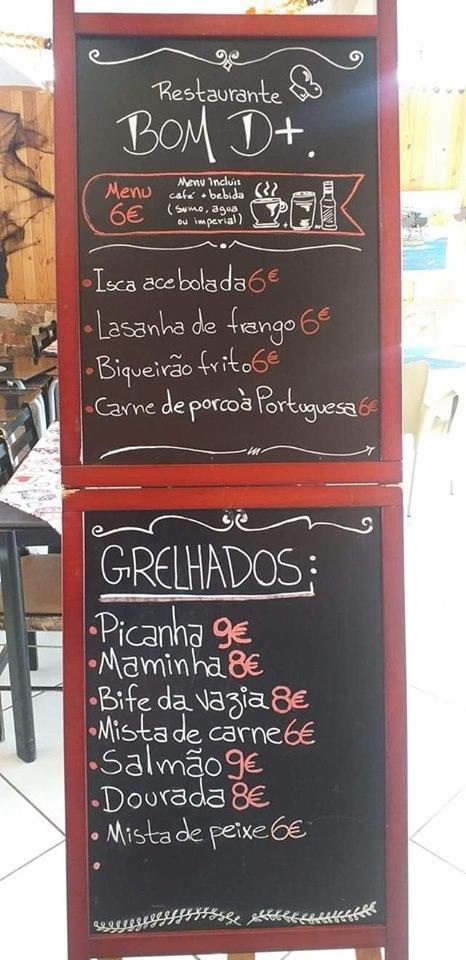 Restaurante
BOM D+.
Menu
6€
Menu Incluis
café + bebida
(sumo, agua
ou imperial)
Isca acebolada 6€
Lasanha de frango 6€
Biqueirão frito 6€
Carne de porco à Portuguesa 6€
GRELHADOS:
Picanha 9€
Maminha 8€
Bife da vazia 8€
Mista de carne 6€
Salmão 9€
Dourada 8€
Mista de peixe 6€